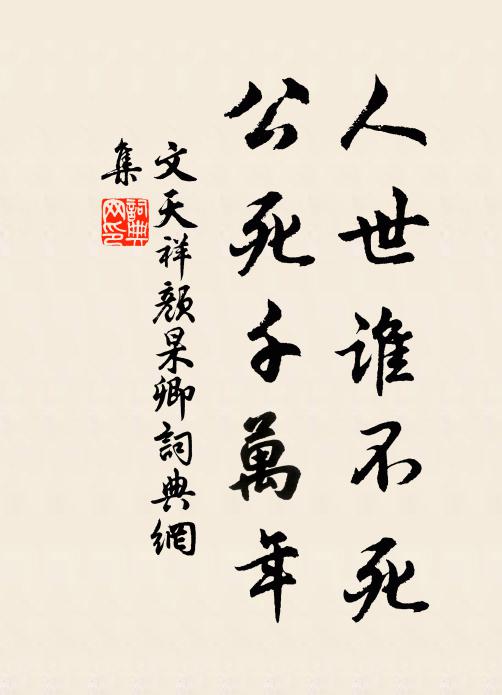 人世誰不死
公死千萬年
文天祥顏杲卿詞典網
集
詞典
网印